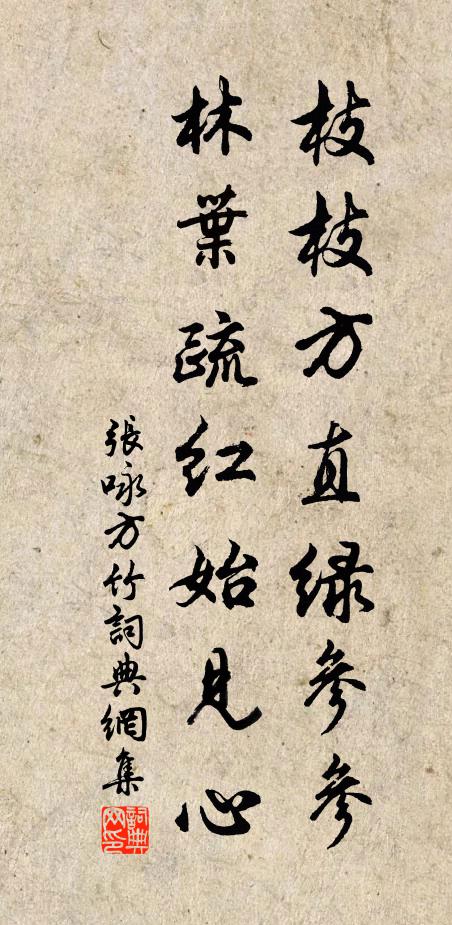 枝枝方直綠參參
林葉疏紅始見心
張咏方竹詞典網集
詞典网印